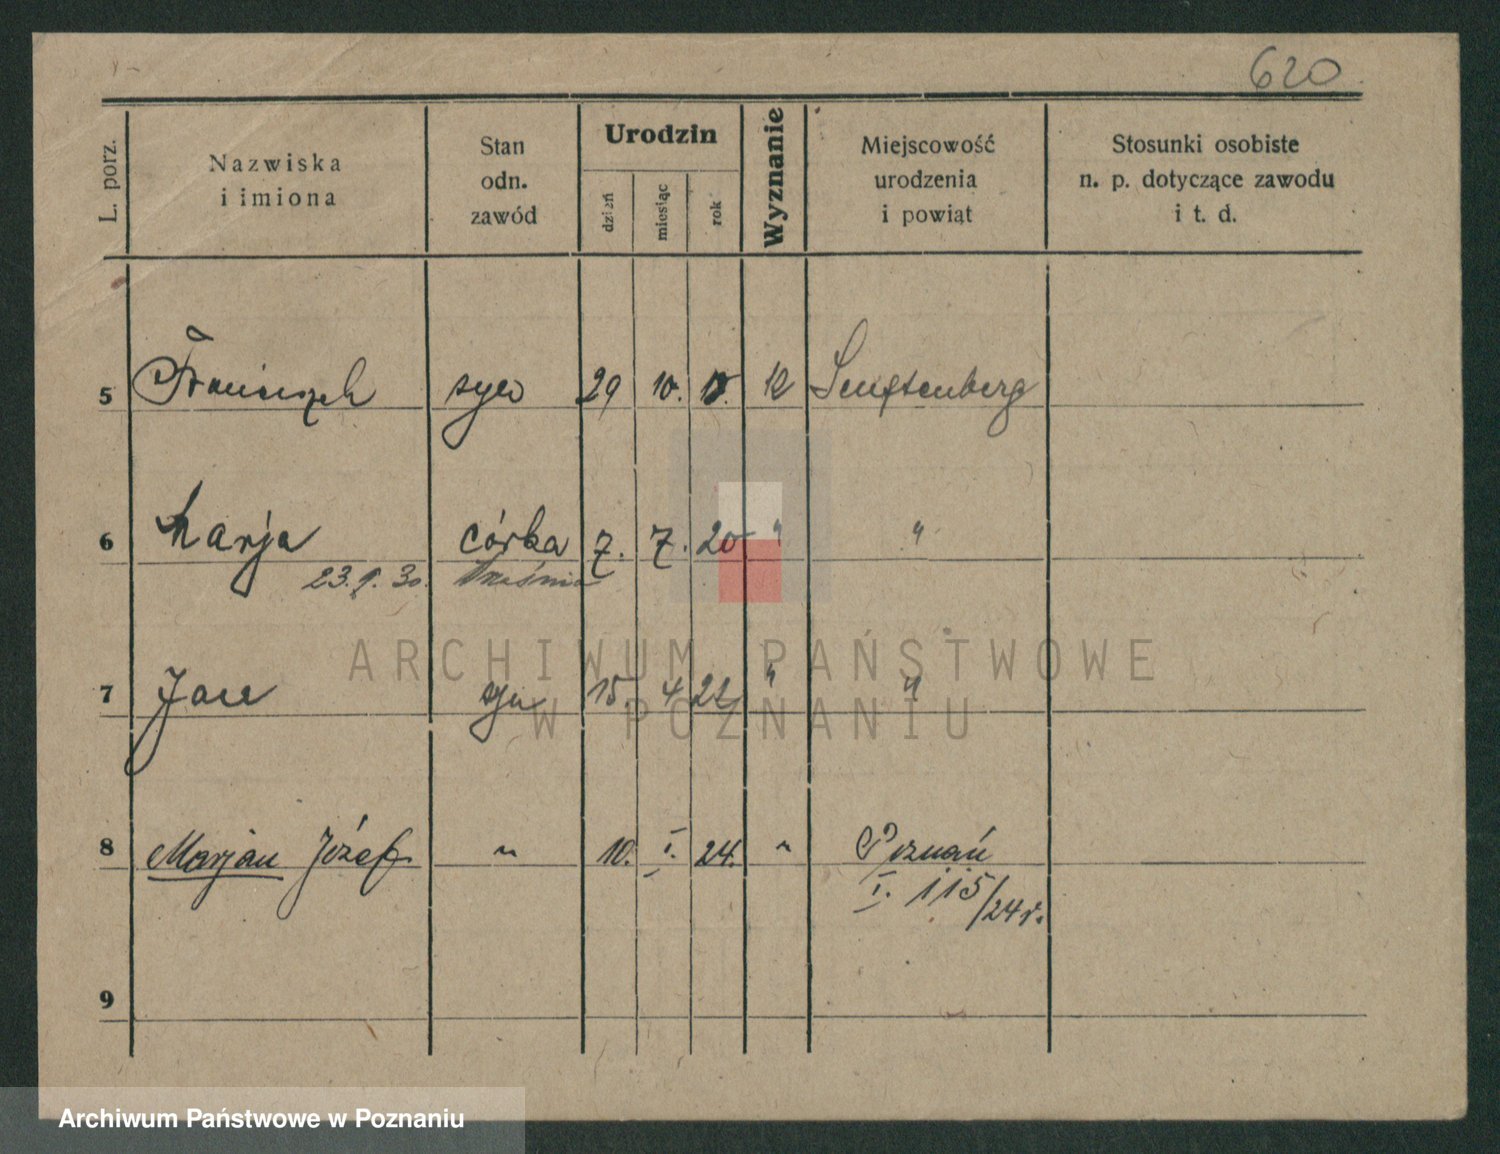 620
L. porz.
Nazwiska
i imiona
Stan
odn.
zawód
Urodzin
dzień
miesiąc
rok
Wyznanie
Miejscowość
urodzenia
i powiąt
Stosunki osobiste
n. p. dotyczące zawodu
i t. d.
5 Franciszek syn 29 10. Senftenberg
6 Marja córka 7. 7. 20 " "
23.9.30.
7 Jan syn 15. 4 22 " "
8 Marjan Józef " 10. I. 24. " Poznań
I. 115/24 r.
9
ARCHIWUM PAŃSTWOWE
W POZNANIU
Archiwum Państwowe w Poznaniu